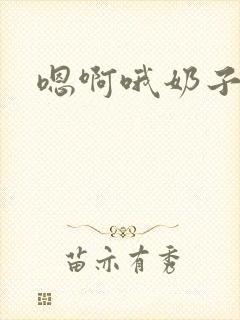 嗯啊哦奶子
苗亦有秀